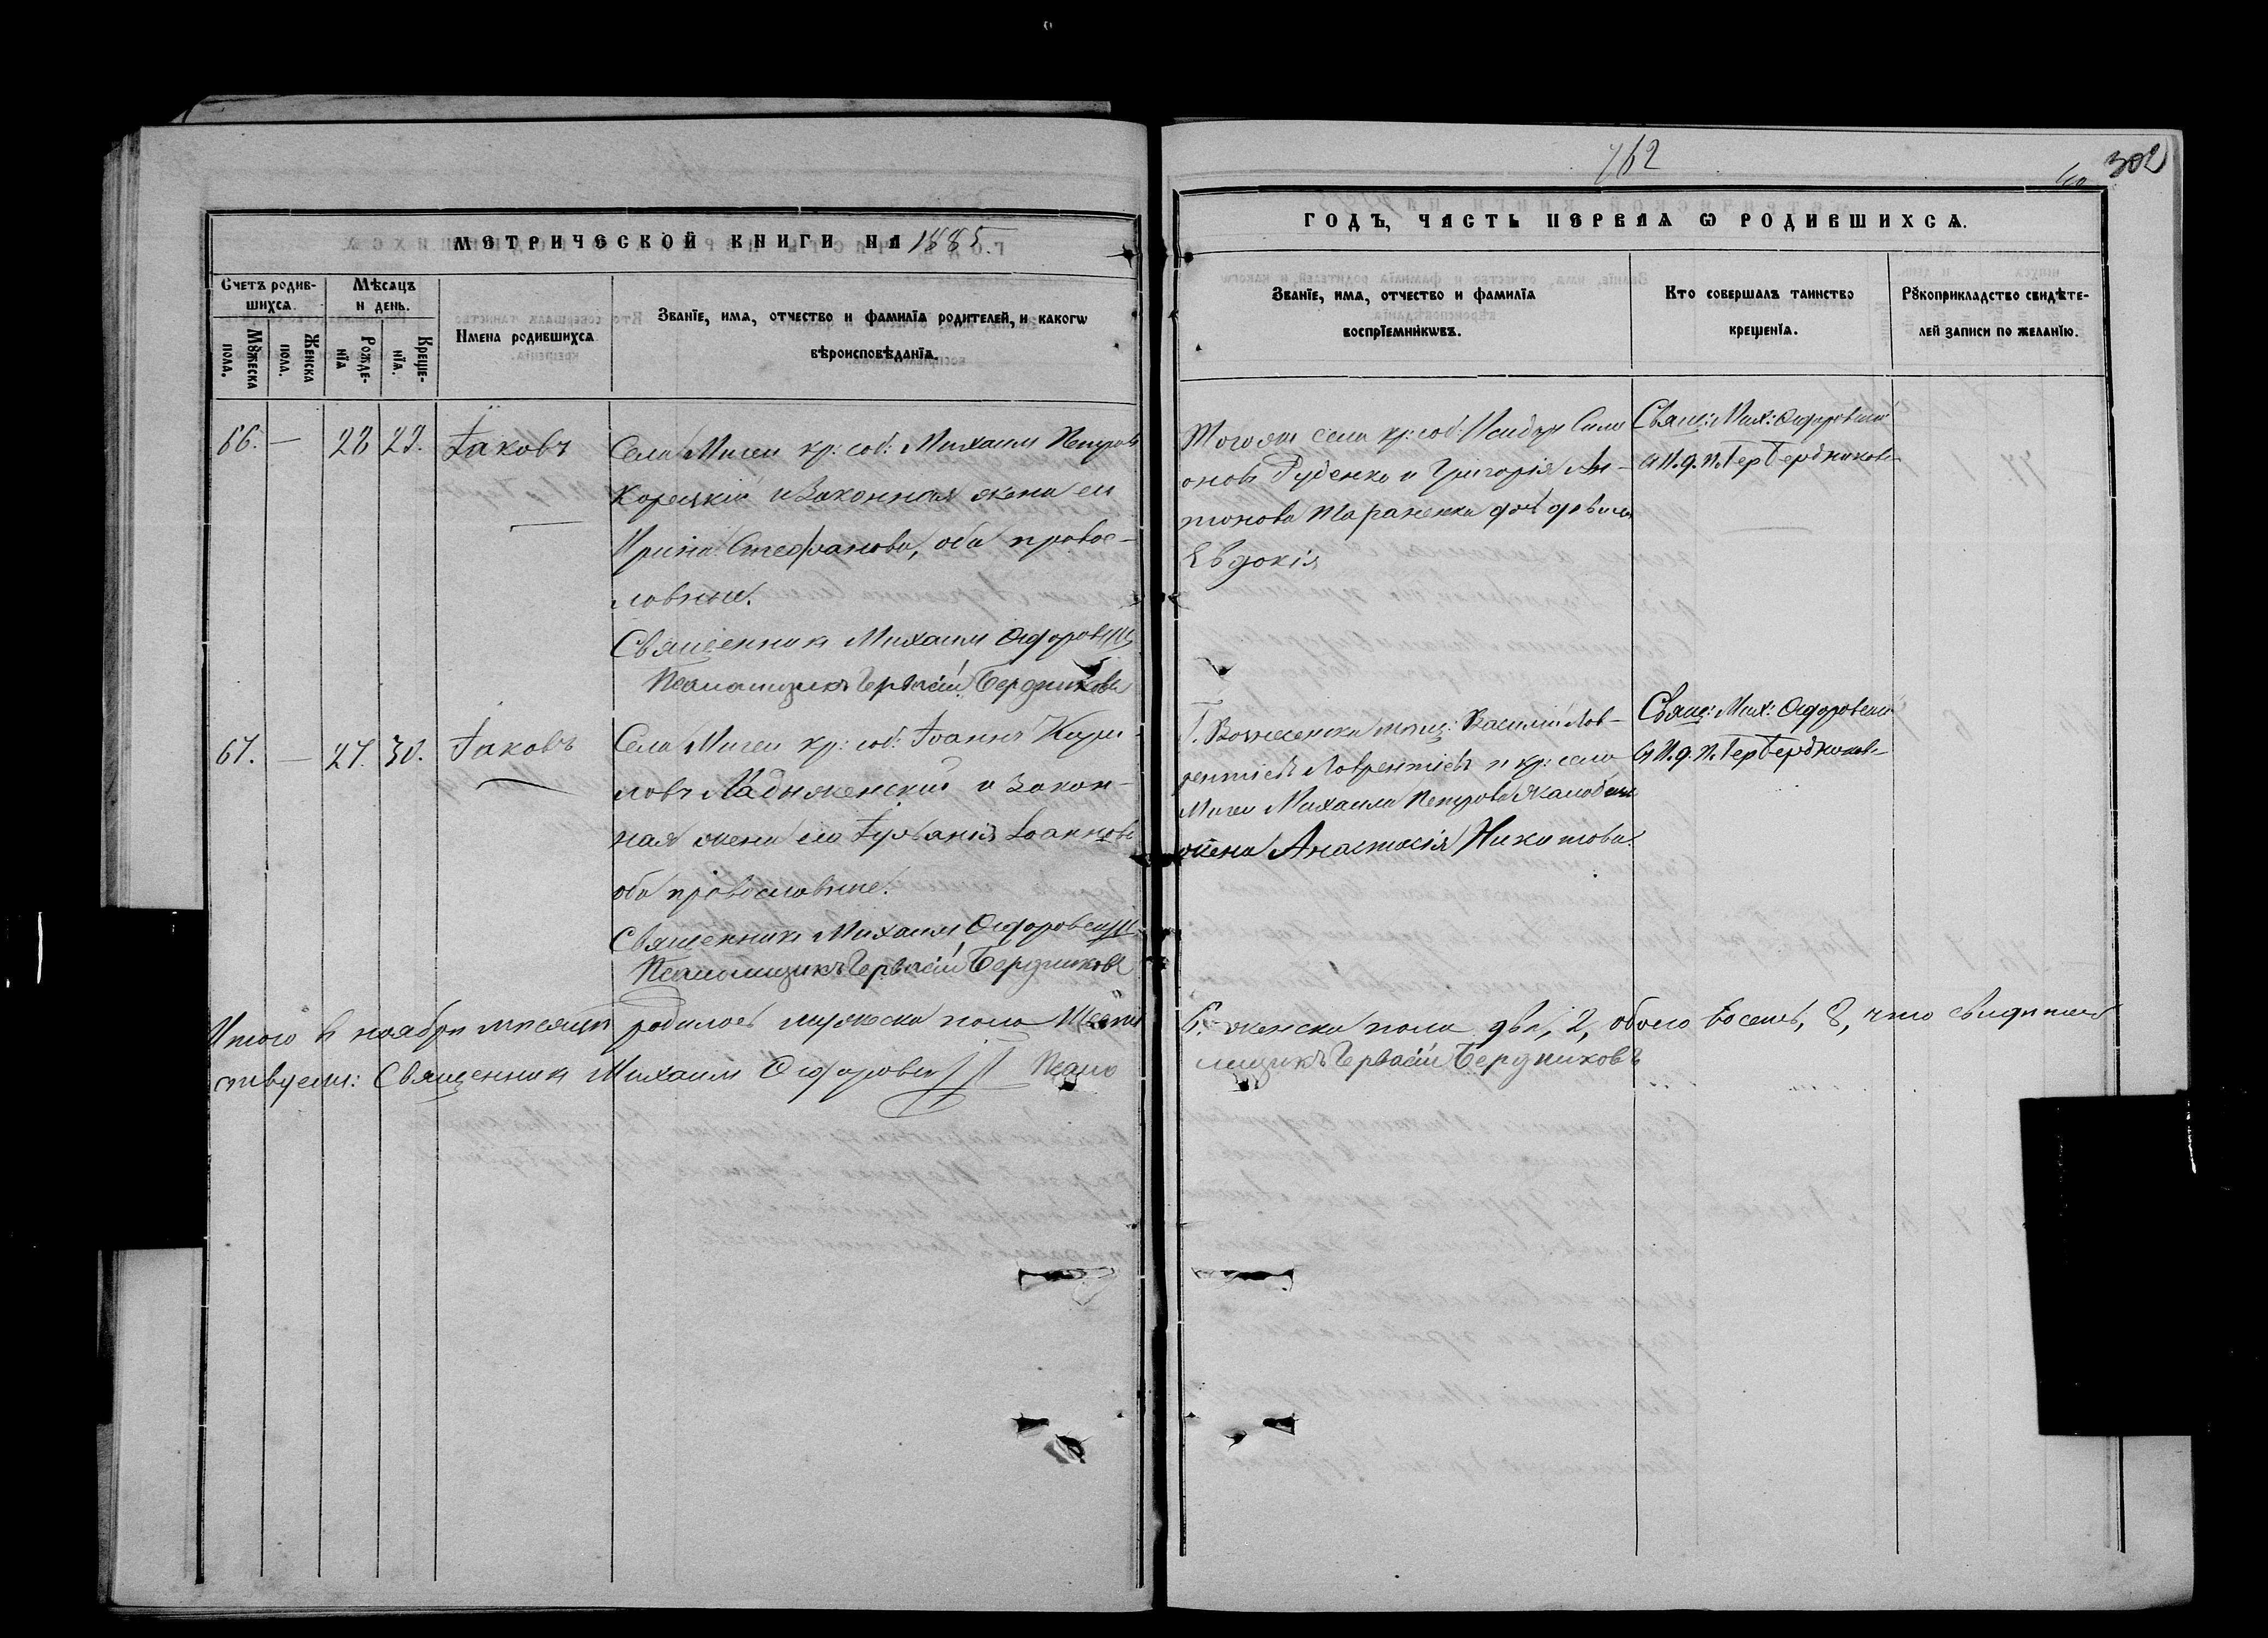 762
302
МЕТРИЧЕСКОЙ КНИГИ НА 1885.
ГОДЪ, ЧАСТЬ ПЕРВАЯ Ѡ РОДИВШИХСѦ.
Счетъ родив-
шихсѧ.
Мѣсѧцъ
и день.
Мꙋжеска
пола.
Женска
пола.
Рожде-
нїѧ
Креще-
нїѧ.
Имена родившихсѧ
Званїе, имѧ, отчество и фамилїѧ родителей, и какогѡ
вѣроисповѣданїѧ.
Званїе, имѧ, отчество и фамилїѧ
воспрїемникѡвъ.
Кто совершалъ таинство
крещенїѧ.
Рꙋкоприкладство свидѣте-
лей записи по желанїю.
66. — 28 29. Іаковъ
Села Мигеи кр: соб: Михаилъ Петровъ
Корецкій и законная жена его
Ирина Стефанова, оба правос-
лавные.
Священникъ Михаилъ
Псаломщикъ Гервасій Бердниковъ
Тогоже села кр: соб: Исидоръ
оновъ Руденко и Григорія Ан-
тонова Тараненка дочь девица
Евдокія
Свящ: Мих:
И. д. п. Гер Бердниковъ
67. — 27. 30. Іаковъ
Села Мигеи кр: соб: Іоаннъ Кири-
ловъ Ладыженскій и закон-
ная жена его Іуліанія Іоаннова
оба православные.
Священникъ Михаилъ
Псаломщикъ Гервасій Бердниковъ
Г. Вознесенска мѣщ: Василій Лав-
рентіевъ Лаврентіевъ и кр: села
Мигеи Михаила Петрова
жена Анастасія
Свящ: Мих:
И. д. п. Гер Бердниковъ
Итого в ноябрѣ мѣсяцѣ родилось мужеска пола шесть 6. женска пола два, 2, обоего восемь, 8, что свидѣтель-
ствуемъ: Священникъ Михаилъ Псало
мщикъ Гервасій Бердниковъ